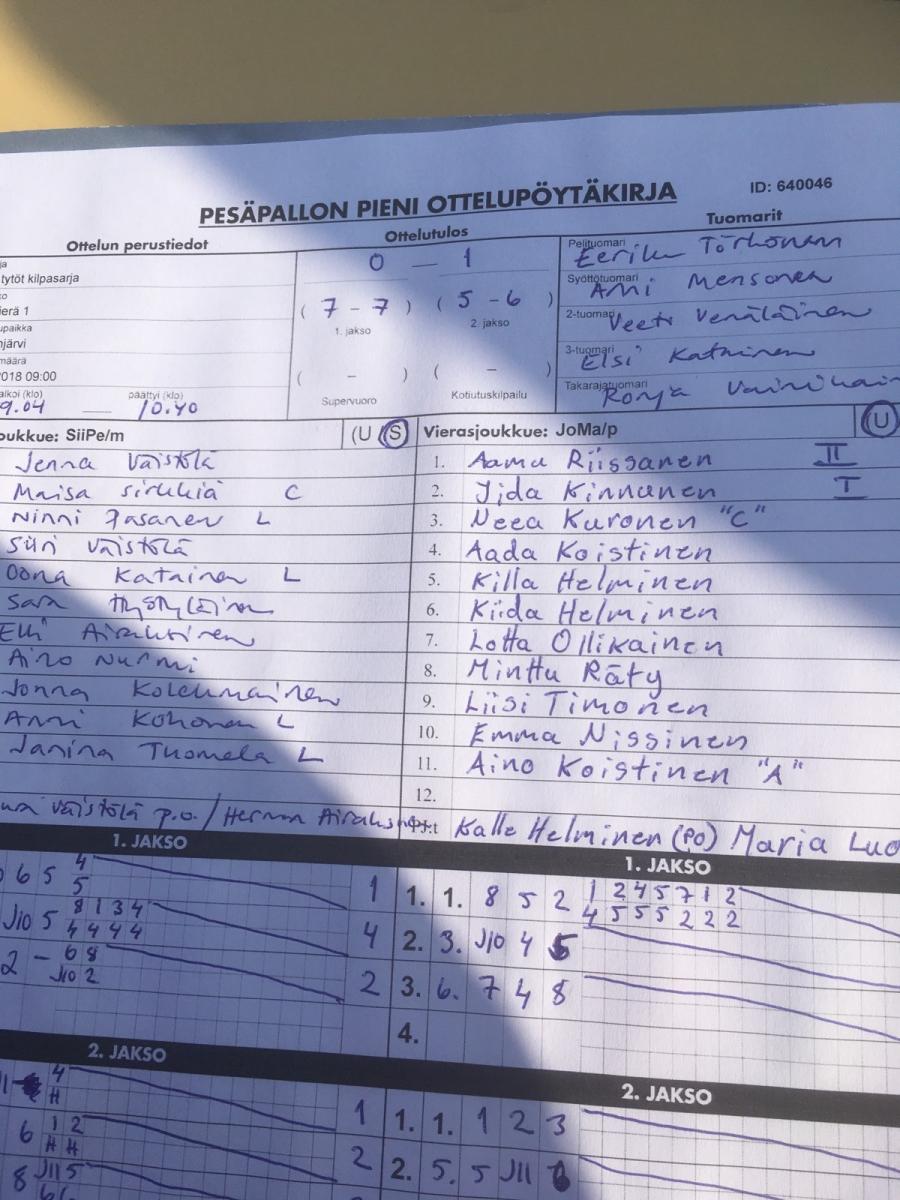 PESÄPALLON PIENI OTTELUPÖYTÄKIRJA
ID: 640046
Ottelun perustiedot
Ottelutulos
Tuomarit
ja
tytöt kilpasarja
0 – 1
Pelituomari
Törhönen
Syöttötuomari
Ami Mensonen
2-tuomari
Venäläinen
3-tuomari
Elsi Katainen
Takarajatuomari
Ronja
ierä 1
( 7 - 7 ) ( 5 - 6 )
1. jakso
2. jakso
upaikka
njärvi
määrä
2018 09:00
( – ) ( – )
Supervuoro
Kotiutuskilpailu
alkoi (klo)
päättyi (klo)
9.04 — 10.40
oukkue: SiiPe/m
(U / S)
Vierasjoukkue: JoMa/p
(U
Jenna Väistölä
Maisa Sirkkiä C
Ninni Pasanen L
Siiri Väistölä
Oona Katainen L
Sara
Elli Airaksinen
Aino Nurmi
Jonna Kolehmainen
Anni Kohonen L
Janina Tuomela L
1. Aamu Riissanen II
2. Iida Kinnunen I
3. Neea Kuronen "C"
4. Aada Koistinen
5. Killa Helminen
6. Kiida Helminen
7. Lotta Ollikainen
8. Minttu Räty
9. Liisi Timonen
10. Emma Nissinen
11. Aino Koistinen "A"
12.
Väistölä p.o. / Herman
PJ:t Kalle Helminen (PO) Maria Luo
1. JAKSO
6 5 4
5
1
J10 5 8 1 3 4
4 4 4 4
4
2 – 6 8
J10 2
2
1. JAKSO
1. 1. 8 5 2 1 2 4 5 7 1 2
4 5 5 5 2 2 2
2. 3. J10 4 5
3. 6. 7 4 8
4.
2. JAKSO
4
H
1
6 1 2
H H
2
8 J11 5
2. JAKSO
1. 1. 1 2 3
2. 5. 5 J11